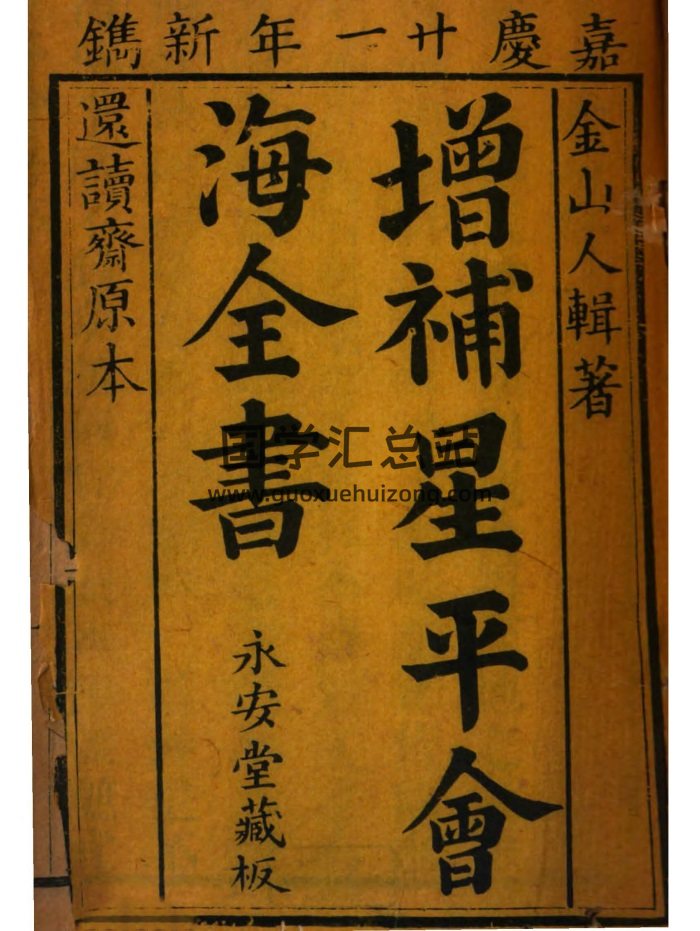 嘉慶廿一年新鐫
金山人輯著
增補星平會
海全書
永安堂藏板
還讀齋原本
国学汇总站
www.guoxuehuizong.com